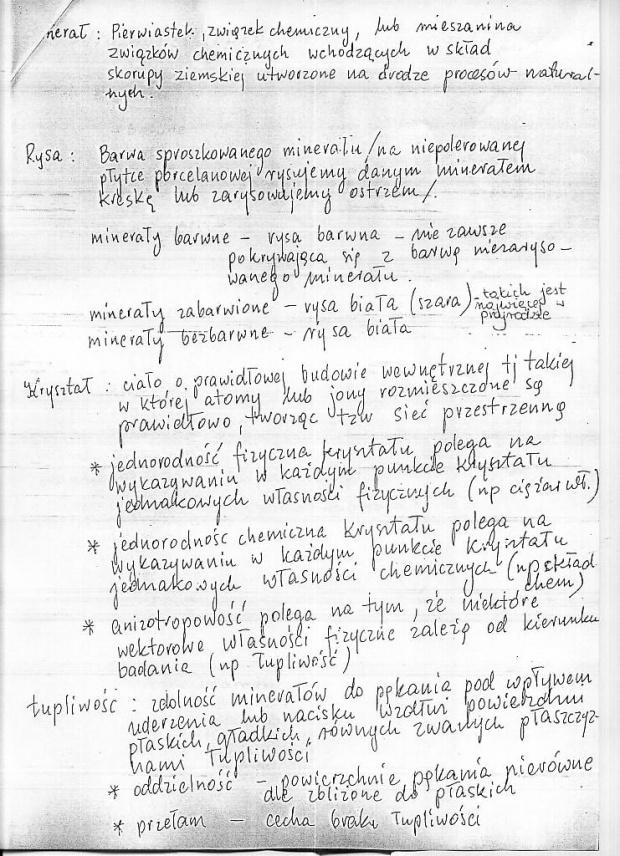 nerał : Pierwiastek, związek chemiczny, lub mieszanina
związków chemicznych wchodzących w skład
skorupy ziemskiej utworzone na drodze procesów natural-
nych.
Rysa : Barwa sproszkowanego minerału /na niepolerowanej
płytce porcelanowej rysujemy danym minerałem
kreskę lub zarysowujemy ostrzem/.
minerały barwne – rysa barwna – nie zawsze
pokrywająca się z barwą niezaryso-
wanego minerału.
minerały zabarwione – rysa biała (szara) - takich jest
najwięcej w
przyrodzie
minerały bezbarwne – rysa biała
Kryształ : ciało o prawidłowej budowie wewnętrznej tj takiej
w której atomy lub jony rozmieszczone są
prawidłowo, tworząc tzw sieć przestrzenną
* jednorodność fizyczna kryształu polega na
wykazywaniu w każdym punkcie kryształu
jednakowych własności fizycznych (np ciężar wł.)
* jednorodność chemiczna kryształu polega na
wykazywaniu w każdym punkcie kryształu
jednakowych własności chemicznych (np skład
chem)
* anizotropowość polega na tym, że niektóre
wektorowe własności fizyczne zależą od kierunku
badania (np łupliwość)
Łupliwość : zdolność minerałów do pękania pod wpływem
uderzenia lub nacisku wzdłuż powierzchni
płaskich, gładkich, równych zwanych płaszczyz-
nami łupliwości
* oddzielność – powierzchnie pękania nierówne
ale zbliżone do płaskich
* przełam – cecha braku łupliwości